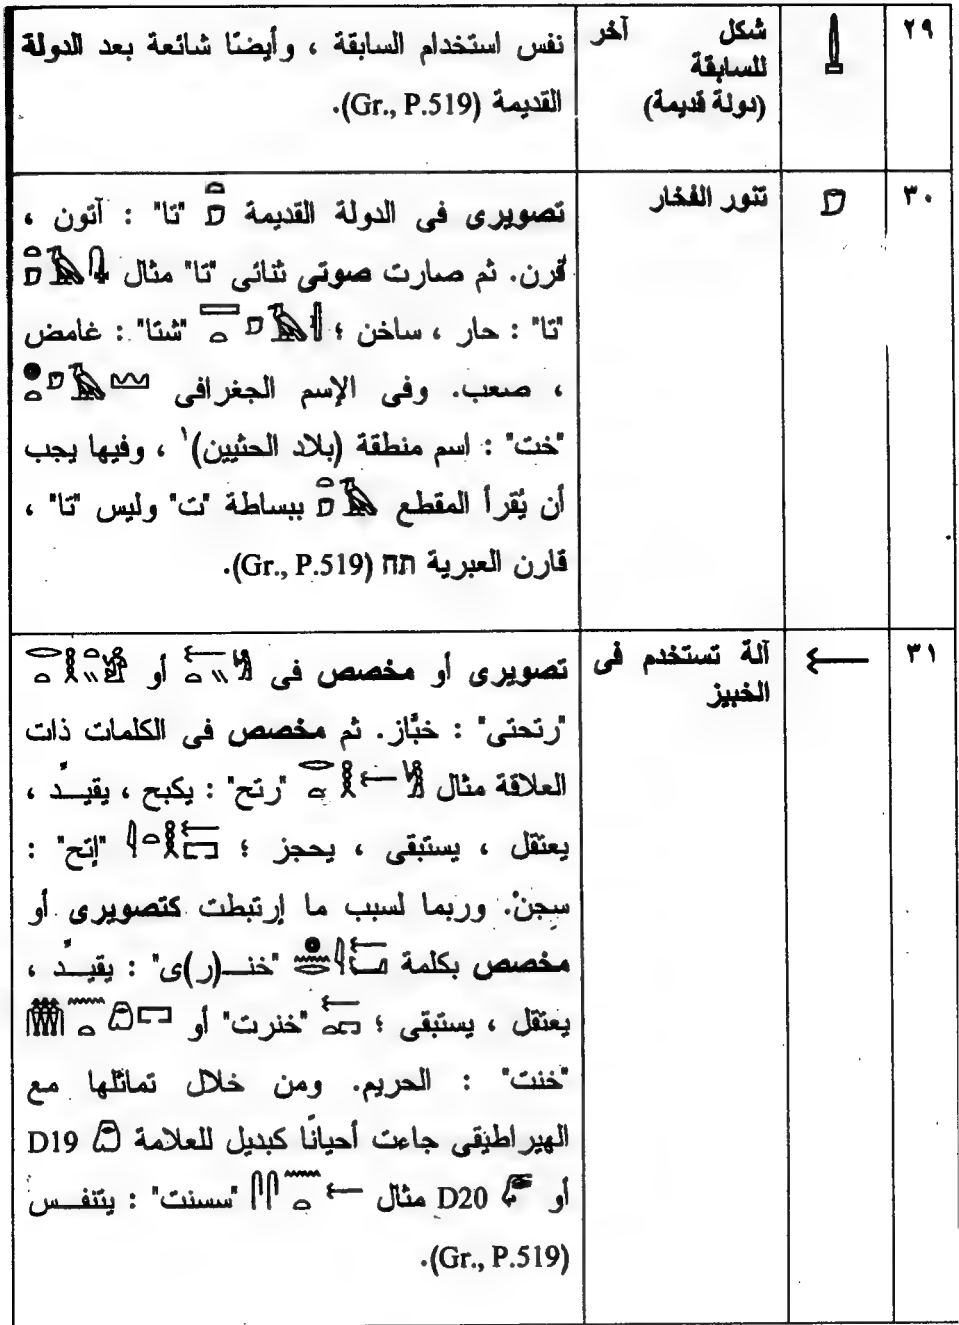 ٢٩
شكل آخر
للسابقة
(دولة قديمة)
نفس استخدام السابقة ، وأيضًا شائعة بعد الدولة
القديمة (Gr., P.519).
٣٠
تنور الفخار
تصويرى فى الدولة القديمة "تا" : آتون ،
فُرن. ثم صارت صوتى ثنائى "تا" مثال
"تا" : حار ، ساخن ؛ "شتا" : غامض
، صعب. وفى الإسم الجغرافى
"خت" : اسم منطقة (بلاد الحثيين)١ ، وفيها يجب
أن يُقرأ المقطع ببساطة "ت" وليس "تا" ،
قارن العبرية חת (Gr., P.519).
٣١
آلة تستخدم فى
الخبيز
تصويرى أو مخصص فى أو
"رتحتى" : خبَّاز. ثم مخصص فى الكلمات ذات
العلاقة مثال "رتح" : يكبح ، يقيـــدَّ ،
يعتقل ، يستبقى ، يحجز ؛ "إتح" :
سِجنْ. وربما لسبب ما إرتبطت كتصويرى أو
مخصص بكلمة "خنــ(ر)ى" : يقيـــدَّ ،
يعتقل ، يستبقى ؛ "خنرت" أو
"خنت" : الحريم. ومن خلال تماثلها مع
الهيراطيقى جاءت أحيانًا كبديل للعلامة D19
أو D20 مثال "سسنت" : يتنفــس
(Gr., P.519).